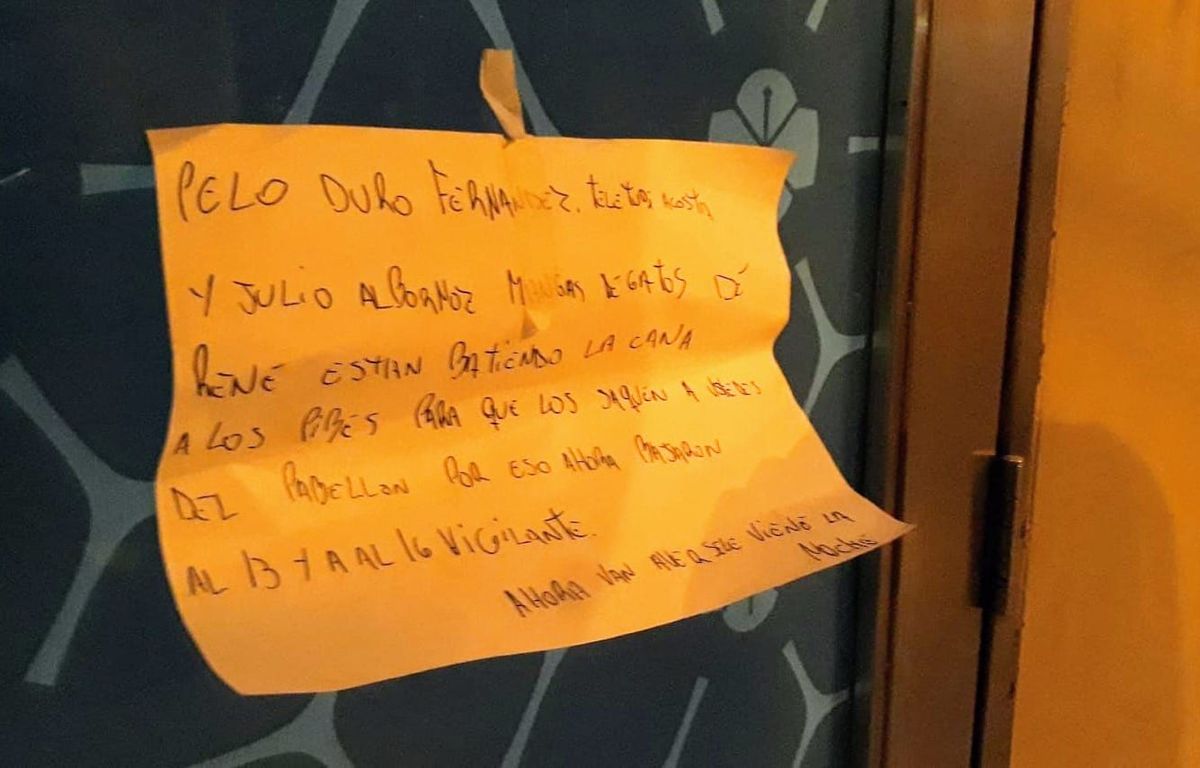 PELO DURO FERNANDEZ. TELETAS ACOSTA
Y JULIO ALBORNOZ MANGAS DEGATOS DÉ
RENÉ ESTIAN BATIENDO LA CANA
A LOS PIBES PARA QUE LOS SAQUEN A USTEDES
DEL PABELLON POR ESO AHORA BAJARON
AL 13 Y A AL 16 VIGILANTE.
AHORA VAN AVER Q SELE VIENE LA
NOCHE